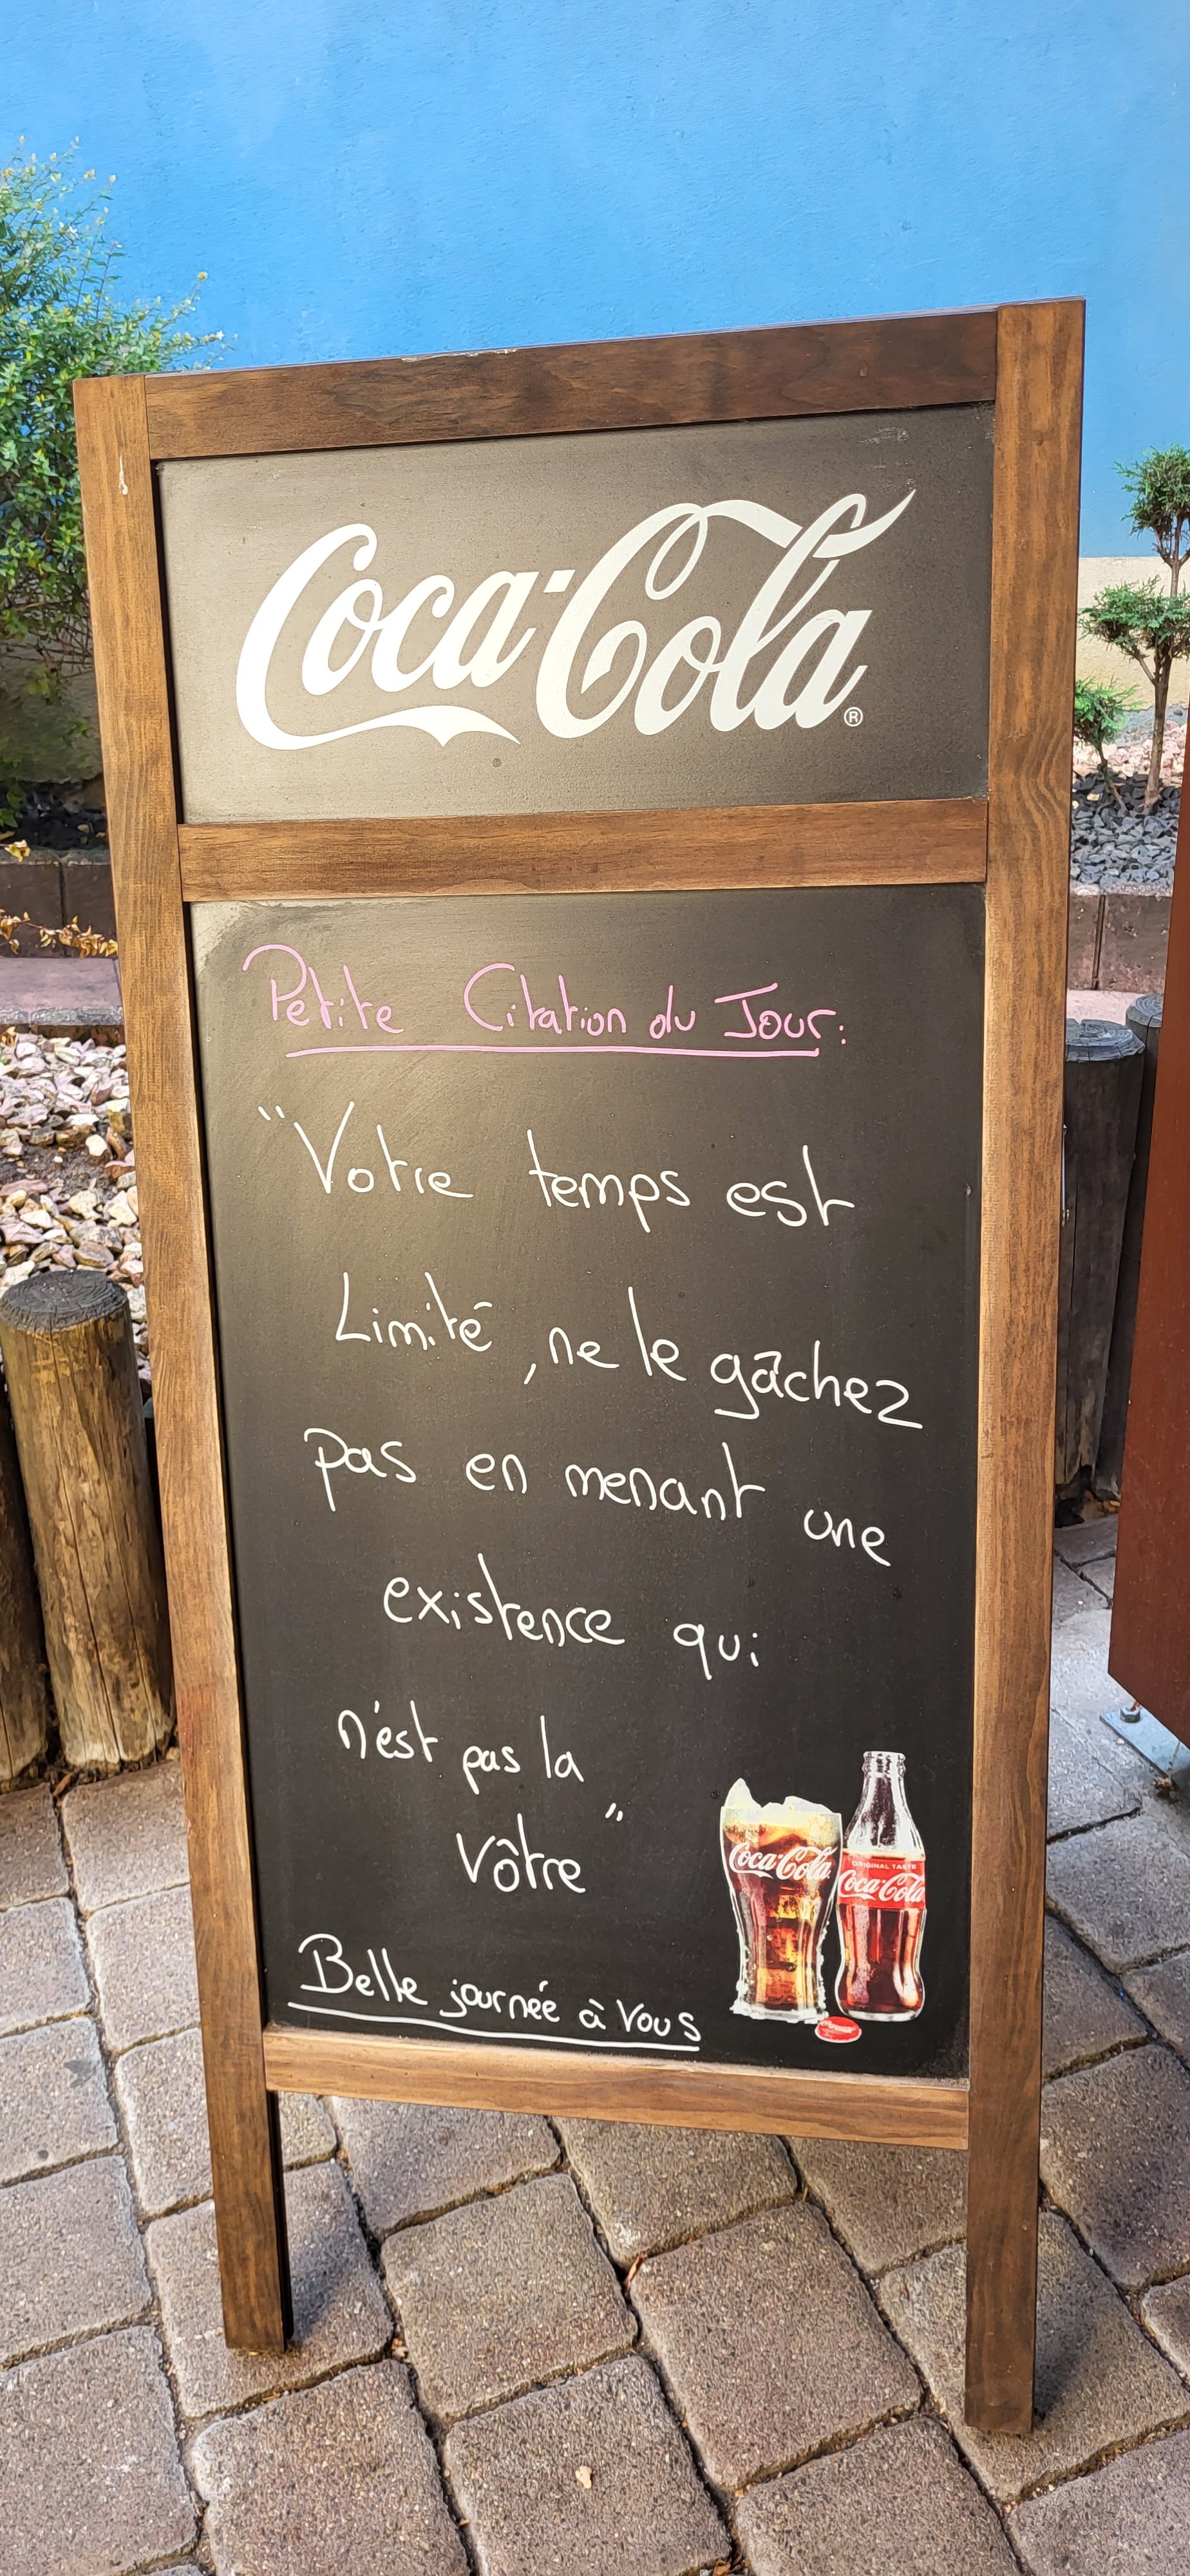 Coca-Cola®
Petite Citation du Jour:
"Votre temps est
Limité, ne le gâchez
pas en menant une
existence qui
n'est pas la
vôtre"
Coca-Cola
ORIGINAL TASTE
Coca-Cola
Belle journée à vous